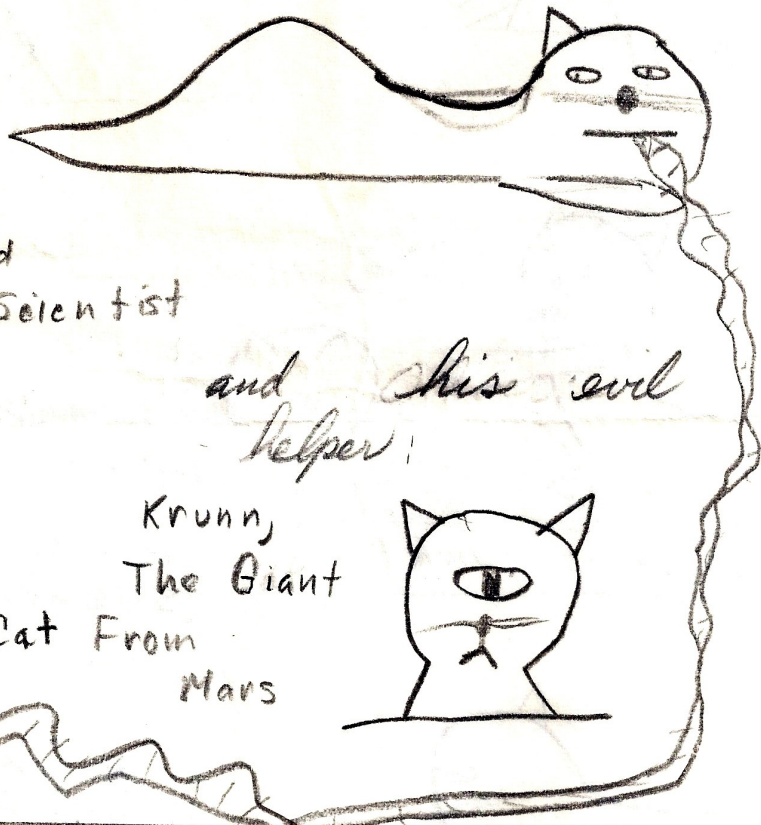 d
Scientist
and his evil
helper:
Krunn,
The Giant
Cat From
Mars